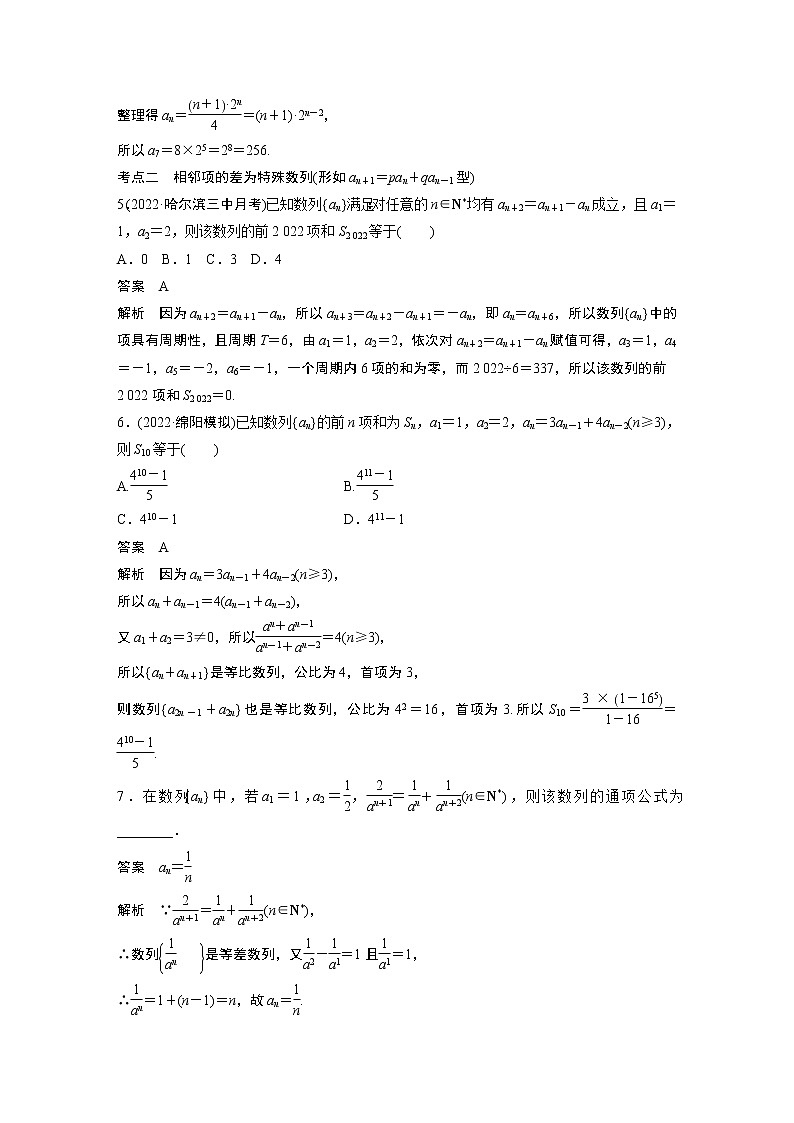 整理得 aₙ＝(n＋1)·2ⁿ/4＝(n＋1)·2ⁿ⁻²，
所以 a₇＝8×2⁵＝2⁸＝256.
考点二　相邻项的差为特殊数列(形如 aₙ₊₁＝paₙ＋qaₙ₋₁型)
5.(2022·哈尔滨三中月考)已知数列{aₙ}满足对任意的 n∈N*均有 aₙ₊₂＝aₙ₊₁－aₙ成立，且 a₁＝
1，a₂＝2，则该数列的前 2 022 项和 S₂ ₀₂₂等于(　　)
A．0　B．1　C．3　D．4
答案　A
解析　因为 aₙ₊₂＝aₙ₊₁－aₙ，所以 aₙ₊₃＝aₙ₊₂－aₙ₊₁＝－aₙ，即 aₙ＝aₙ₊₆，所以数列{aₙ}中的
项具有周期性，且周期 T＝6，由 a₁＝1，a₂＝2，依次对 aₙ₊₂＝aₙ₊₁－aₙ赋值可得，a₃＝1，a₄
＝－1，a₅＝－2，a₆＝－1，一个周期内 6 项的和为零，而 2 022÷6＝337，所以该数列的前
2 022 项和 S₂ ₀₂₂＝0.
6．(2022·绵阳模拟)已知数列{aₙ}的前 n 项和为 Sₙ，a₁＝1，a₂＝2，aₙ＝3aₙ₋₁＋4aₙ₋₂(n≥3)，
则 S₁₀等于(　　)
A.(4¹⁰－1)/5　　B.(4¹¹－1)/5
C．4¹⁰－1　　D．4¹¹－1
答案　A
解析　因为 aₙ＝3aₙ₋₁＋4aₙ₋₂(n≥3)，
所以 aₙ＋aₙ₋₁＝4(aₙ₋₁＋aₙ₋₂)，
又 a₁＋a₂＝3≠0，所以(aₙ＋aₙ₋₁)/(aₙ₋₁＋aₙ₋₂)＝4(n≥3)，
所以{aₙ＋aₙ₊₁}是等比数列，公比为 4，首项为 3，
则数列{a₂ₙ₋₁＋a₂ₙ}也是等比数列，公比为 4²＝16，首项为 3.所以 S₁₀＝3×(1－16⁵)/(1－16)＝
(4¹⁰－1)/5.
7．在数列{aₙ}中，若 a₁＝1，a₂＝1/2，2/aₙ₊₁＝1/aₙ＋1/aₙ₊₂(n∈N*)，则该数列的通项公式为
________．
答案　aₙ＝1/n
解析　∵2/aₙ₊₁＝1/aₙ＋1/aₙ₊₂(n∈N*)，
∴数列{1/aₙ}是等差数列，又1/a₂－1/a₁＝1 且1/a₁＝1，
∴1/aₙ＝1＋(n－1)＝n，故 aₙ＝1/n.